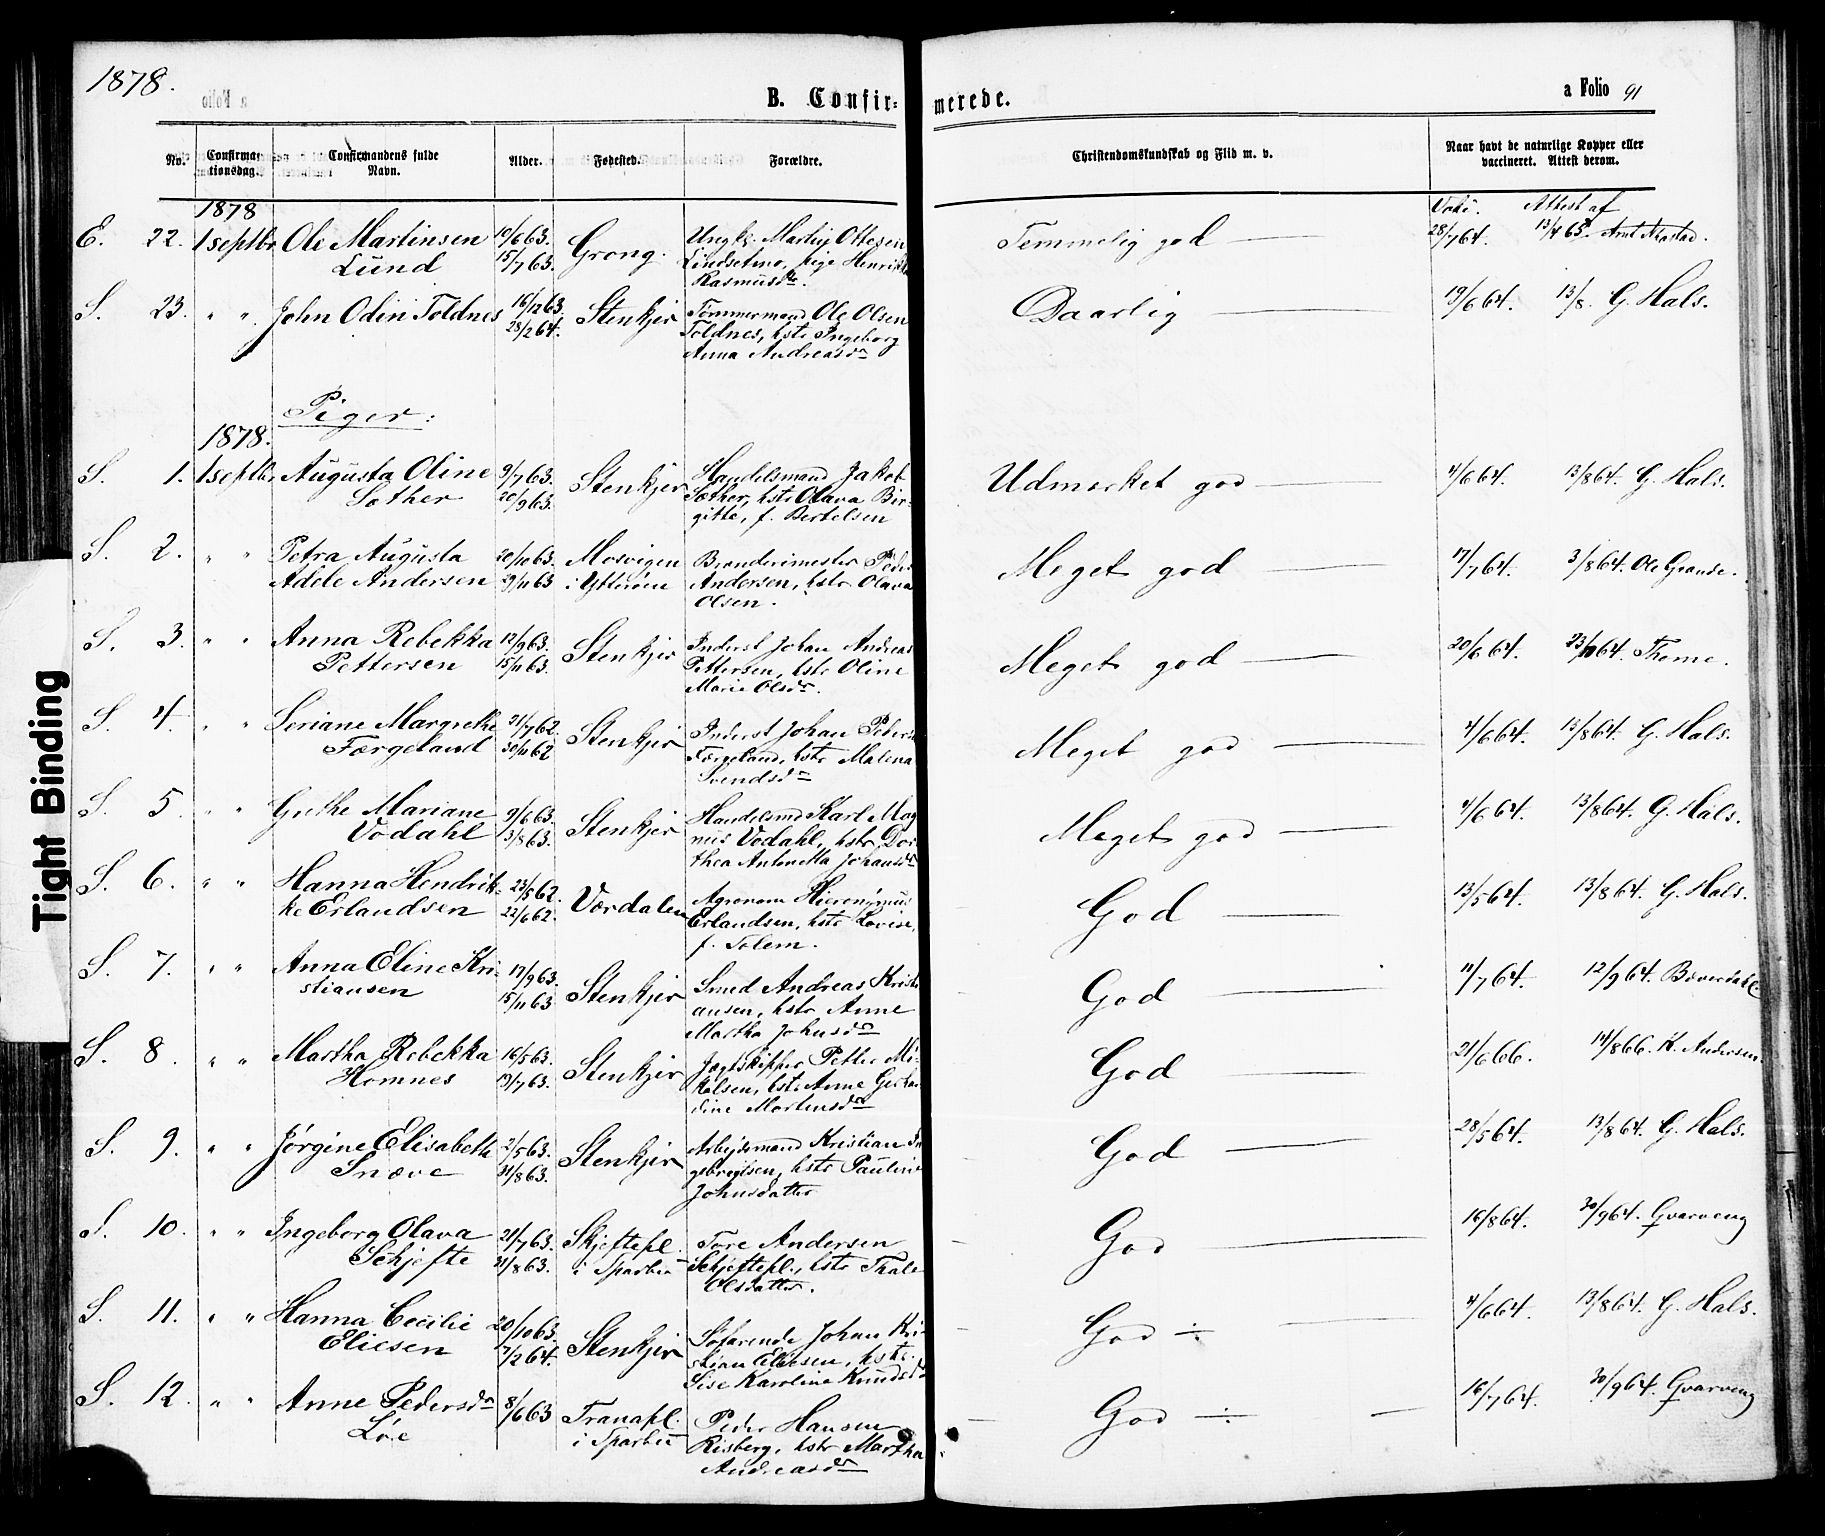 1878.
B. Confir-
merede.
a Folio 91
No.
Confirma-
tionsdag.
Confirmandens fulde
Navn.
Alder.
Fødested.
Forældre.
Christendomskundskab og Flid m. v.
Naar havt de naturlige Kopper eller
vaccineret. Attest derom.
1878
Attest af
E. 22. 1 septbr Ole Martinsen 10/6 63. Grong. Ungk. Martin Ottesen Temmelig god 28/7 64. 13/4 65.
Lund 15/7 63. Lindsetmo, pige Henrikke
Rasmusdr.
S. 23. " " John Odin Toldnes 16/12 63. Stenkjer Tømmermand Ole Olsen Daarlig 19/6 64. 13/8. G. Hals.
28/2 64. Toldnes, hstr Ingeborg
Anna Andreasdr
Piger:
1878.
S. 1. 1 septbr. Augusta Oline 9/7 63. Stenkjer Handelsmand Jakob Udmærket god 4/6 64. 13/8 64. G. Hals.
Sæther 20/9 63. Sæther, hstr Olava Bir-
gitte, f. Bertelsen
S. 2. " " Petra Augusta 20/10 63. Mosvigen Brænderimester Peder Meget god 17/7 64. 3/8 64. Ole Grande.
Adele Andersen 29/11 63 i Ytterøen Andersen, hstr Olava
Olsen.
S. 3. " " Anna Rebekka 12/9 63. Stenkjer Inderst Johan Andreas Meget god 20/6 64. 23/11 64. Theme.
Pettersen 15/11 63. Pettersen, hstr Oline
Marie Olsdr.
S. 4. " " Seriane Margrethe 21/7 62. Stenkjer Inderst Johan Peders. Meget god 4/6 64. 13/8 64. G. Hals.
Færgeland 30/11 62 Færgeland, hstr Malena
Svendsdr
S. 5. " " Grethe Mariane 9/6 63. Stenkjer Handelsmd Karl Mag Meget god 4/6 64. 13/8 64. G. Hals.
Vodahl 3/8 63. nus Vodahl, hstr Dor
thea Antonetta Johansdr
S. 6. " " Hanna Hendrik- 23/5 62. Værdalen Agronom Hieronymus God 13/5 64. 13/8 64. G. Hals.
ke Erlandsen 22/6 62. Erlandsen, hstr Lovise,
f. Tolem.
S. 7. " " Anna Eline Kri- 17/9 63. Stenkjer Smed Andreas Kristi God 11/7 64. 12/9 64. Bæverdahl.
stiansen 15/11 63 ansen, hstr Anne
Martha Johnsdr
S. 8. " " Martha Rebekka 16/5 63. Stenkjer Jægtskipper Petter Mi- God 21/6 66. 14/8 66. K. Andersen
Homnes 19/7 63. kalsen, hstr Anne Gerhar
dine Martinsdr
S. 9. " " Jørgine Elisabeth 2/5 63. Stenkjer Arbejdsmand Kristian In God 28/5 64. 13/8 64. G. Hals.
Snæve 31/8 63. gebregtsen, hstr Pauline
Johnsdatter
S. 10. " " Ingeborg Olava 21/7 63. Skjeftepl. Tore Andersen God 16/8 64. 30/9 64. Gvarveng
Schjefte 31/8 63. i Sparbu Schjeftepl., hstr Thale
Olsdatter.
S. 11. " " Hanna Cecilie 20/10 63. Stenkjer Søfarende Johan Kri- God ÷ 4/6 64. 13/8 64. G. Hals.
Eliesen 7/2 64. stian Eliesen, hstr.
Sise Karoline Knudsdr
S. 12. " " Anne Pedersdr 8/6 63 Tranapl. Peder Hansen God ÷ 16/7 64. 30/9 64. Gvarveng
Løe i Sparbu Risberg, hstr Martha
Andreasdr
Tight Binding